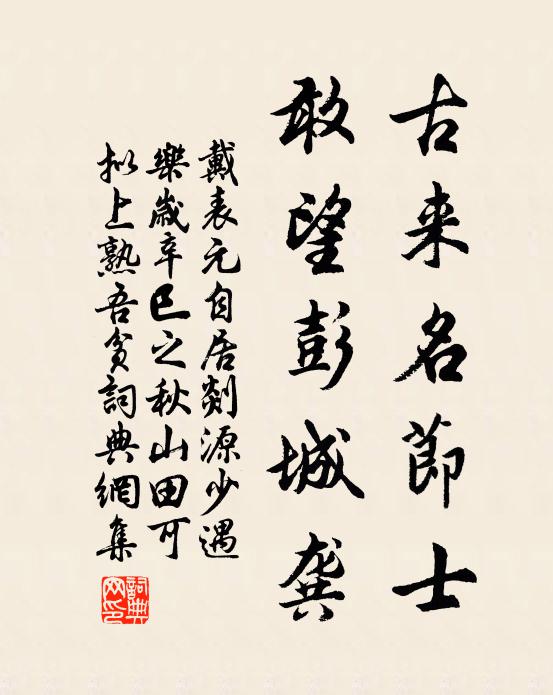 古来名節士
敢望彭城龔
戴表元自居剡源少遇
樂歲辛巳之秋山田可
擬上熟吾貧詞典網集
詞典網印